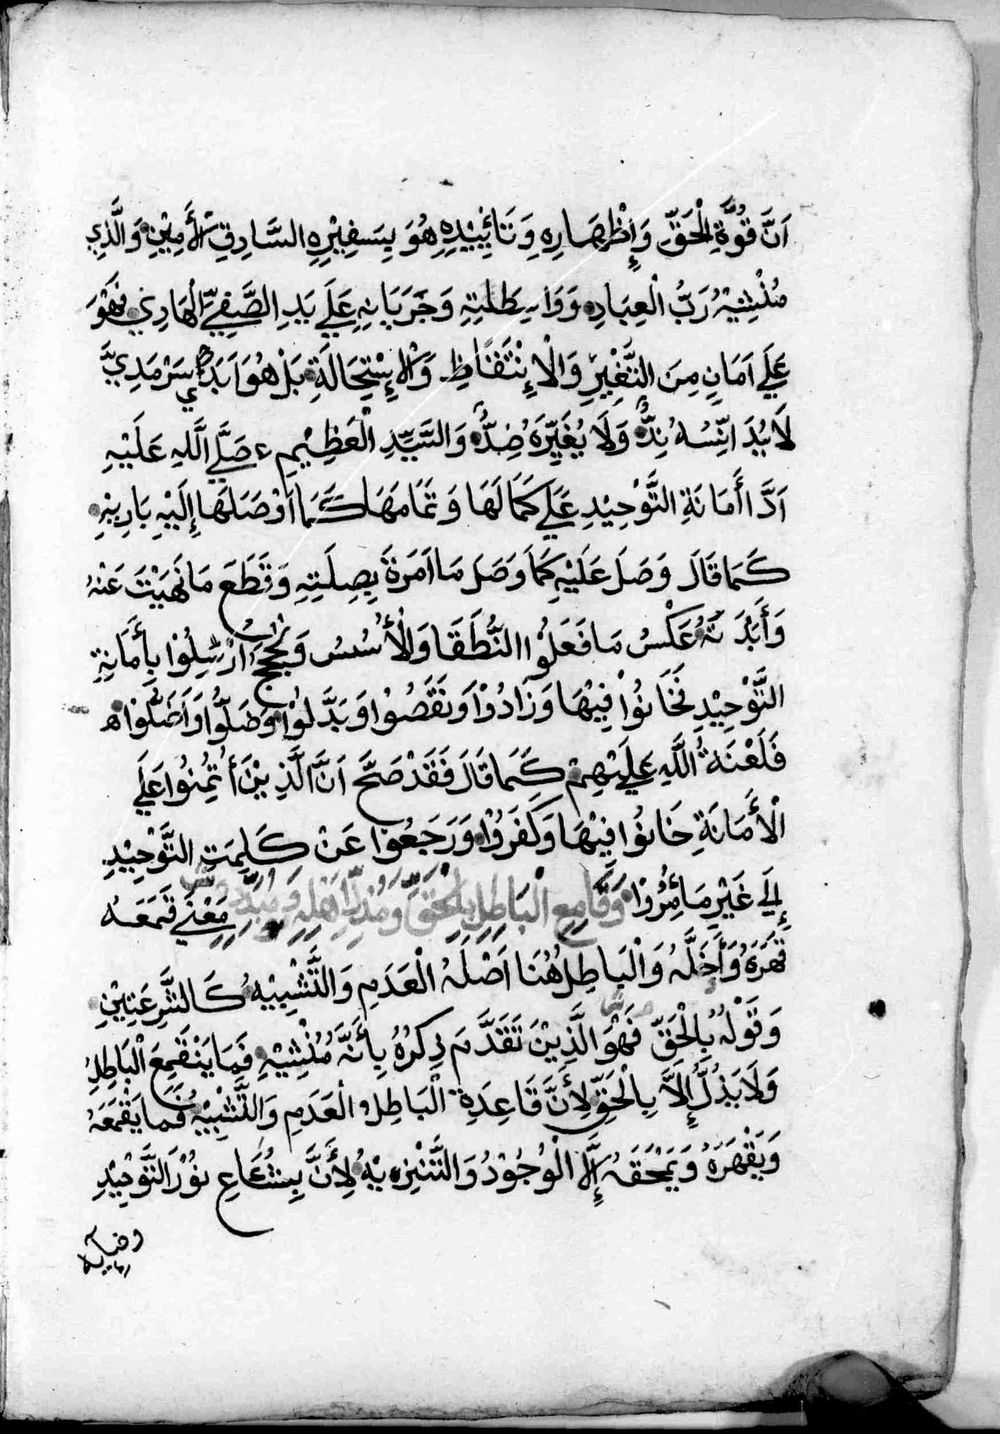 اَنَّ قُوَّةِ الْحَقِّ وَإِظْهَارِهِ وَتَائِيْيدِهِ هُوَ بِسَفِيْرِهِ السَّادِقِ الْأَمِيْنِ وَالَّذِي
مُنْشِيْهُ رَبُّ الْعِبَادِ وَوَاسِطَلتِهِ وَجَرَيَانِهِ عَلَي يَدِ الصَّفِيِّ الْهَادِي فَهُوَ
عَلَي اَمَانٍ مِنَ التَّغْيِيْرِ وَالْاِنْتَقَاظِ وَالْاِسْتِحَالَةِ بَلْ هُوَ اَبَدًا سَرْمَدِيٌّ
لَا يُدَ انِّسُهُ نِدٌّ وَلَا يُغَيِّرَهُ ضِدٌّ وَالسَّيِّدِ الْعَظِيْمِ ء صَلَّي اللَّهِ عَلَيْهِ
اَدَّا أَمَانَةِ التَّوْحِيْدِ عَلَي كَمَالَهَا وَتَمَامَهَا كَمَا اَوْصَلَهَا إِلَيْهِ بَارِيْهِ
كَمَا قَالَ وَصَلَ عَلَيْهِ كَمَا وَصَلَ مَا اَمَرَةَ بِصِلَتِهِ وَقَطَعَ مَا نَهَيْتَ عَنْهُ
وَأَبْدَتَهُ عَكْسُ مَا فَعَلُوْا النُّطَقَا وَالْأُسُسُ وَحُجَجٌ اُرْسِلُوْا بِأَمَانَةِ
التَّوْحِيْدِ فَخَانُوْا فِيْهَا وَزَادُوْا وَنَقَصُوْا وَبَدَّلُوْا وَضَلُّوا وَاَضَلُّوْا
فَلَعْنَةُ اللَّهِ عَلَيْهِمْ كَمَا قَالَ فَقَدْ صَحَّ اَنَّ الَّذِيْنَ أُتُمِنُوْا عَلَي
الْأَمَانَةِ خَانُوْا فِيْهَا وَكَفَرُوْا وَرَجَعُوْا عَنْ كَلِمَتِ التَّوْحِيْدِ
إِلَي غَيْرِ مَا أُمِرُوْا وَقَامِعِ الْبَاطِلِ بِالْحَقِّ وَمُذِلِّ اَهْلِهِ وَمُبِيْدِ مَعْنَي قَمَعَهُ
قَهَرَهُ وَأَخَلَّهُ وَالْبَاطِلُ هُنَا اَصْلُهُ الْعَدَمِ وَالتَّشْبِيْهِ كَالشَّرْعَتِيْنِ
وَقَوْلُهُ بِالْحَقِّ فَهُوَ الَّذِيْنَ تَقَدَّمَ ذِكْرُهُ بِأَنَّهُ مُنْشِيْهِ فَمَا يَنْقَمِعَ الْبَاطِلُ
وَلَا يَذِلُّ إِلَّا بِالْحَقِّ لِأَنَّ قَاعِدِةَ الْبَاطِلُ الْعَدَمِ وَالتَّشْبِيْهُ فَمَا يَقْمَعَهُ
وَيَقْهَرَهُ وَيَمْحَقَهُ إِلَّا الْوُجُوْدُ وَالتَّنْزِيْهُ لِأَنَّ بِشُعَاعِ نُوْرِ التَّوْحِيْدِ
وضيايه